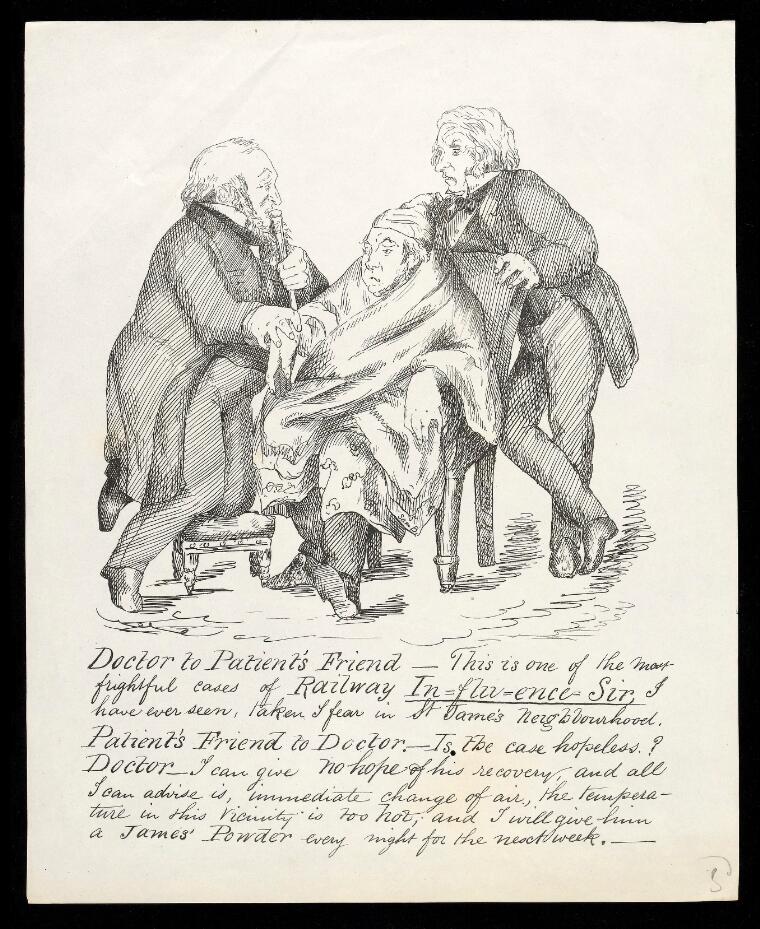 Doctor to Patient's Friend — This is one of the most
frightful cases of Railway In=flu=ence= Sir, I
have ever seen, taken I fear in St James's Neighbourhood.
Patient's Friend to Doctor. — Is the case hopeless.?
Doctor — I can give no hope of his recovery, and all
I can advise is, immediate change of air, the tempera-
ture in this Vicinity is too hot, and I will give him
a James' Powder every night for the next week. —